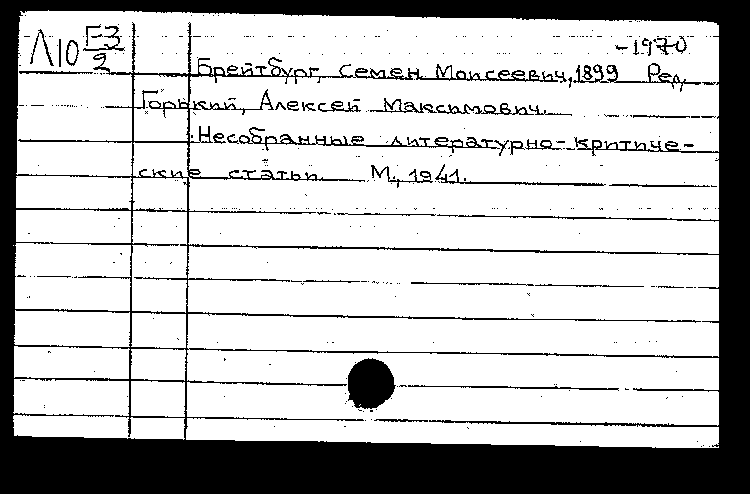 Л10 Г3/2
-1970
Брейтбург, Семен Моисеевич, 1899 Ред.
Горький, Алексей Максимович.
Несобранные литературно-критиче-
ские статьи. М., 1941.